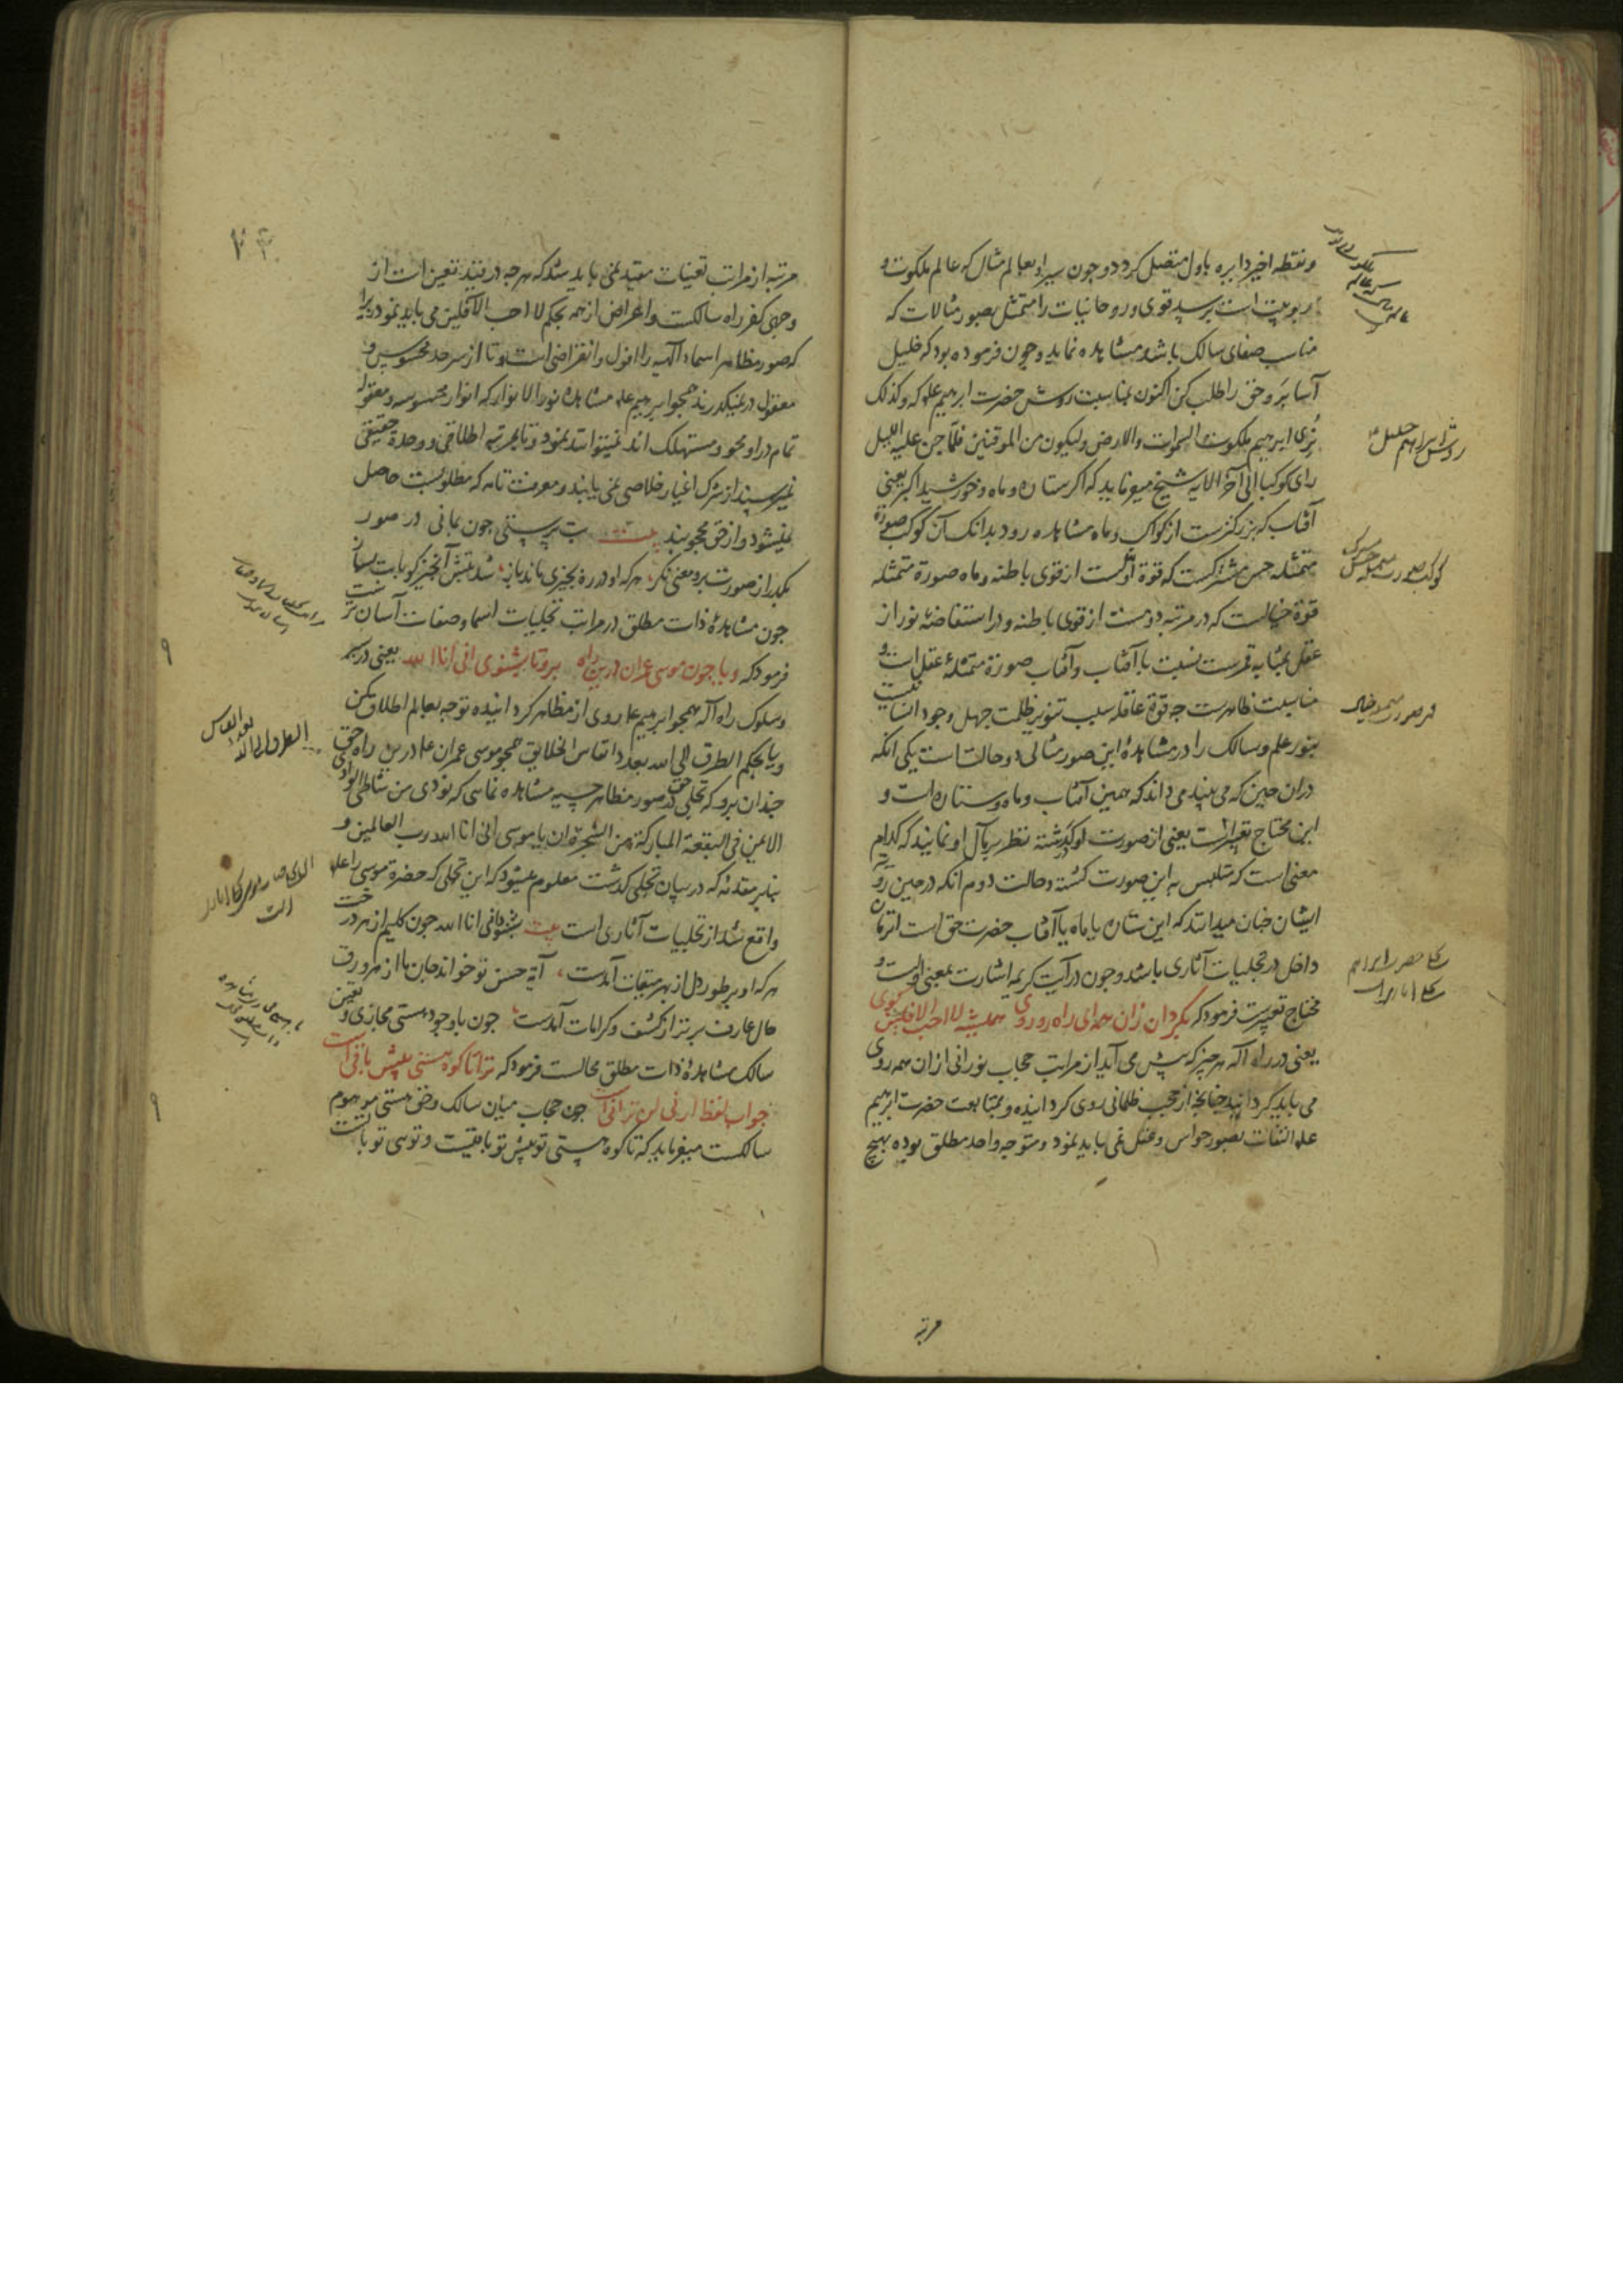 و نقطه اخیر دایره باول متصل کردد و چون سیر او بعالم مثال که عالم ملکوت و
ربوبیت است برسد قوی و روحانیات را متمثل بصور مثالات که
مناسب صفای سالک باشد مشاهده نماید و چون فرموده بود که خلیل
آسا برو حق را طلب کن اکنون بمناسبت روش حضرت ابرهیم علم که وکذلک
نُری ابرهیم ملکوت السموات والارض ولیکون من الموقنین فلمّا جن علیه اللیل
رای کوکبا الی آخر الایه شیخ میفرماید که اکر ستاره و ماه و خورشید اکبر یعنی
آفتاب که بزرکترست از کواکب و ماه مشاهده رود بدانک آن کوکب صورة
متمثله حس مشترکست که قوة اولست از قوی باطنه و ماه صورة متمثله
قوة خیالست که در مرتبه دومست از قوی باطنه و در استفاضهٔ نور از
عقل بمثابه قمرست نسبت با آفتاب و آفتاب صورة متمثلهٔ عقل است و
مناسبت ظاهرست چه قوة عاقله سبب تنویر ظلمت جهل وجود انسانیست
بنور علم و سالک را در مشاهدهٔ این صور مثالی دو حالت است یکی آنکه
دران حین که می بیند می داند که همین آفتاب و ماه و ستاره است و
این محتاج تعبیرست یعنی از صورت او کذشته نظر بر مآل او نمایند که کدام
معنی است که متلبس به این صورت کشته و حالت دوم آنکه در حین رویة
ایشان چنان میداند که این ستاره یا ماه یا آفتاب حضرت حق است
داخل در تجلیات آثاری باشد و چون در آیت کریمه اشارت بمعنی اولست و
محتاج تعبیرست فرمود که بکردان زان همه ای راه رو روی همیشه لا احب الافلین کوی
یعنی در راه اله هر چیز که پیش می آید از مراتب حجاب نورانی ازان همه روی
می باید کردانید چنانچه از حجب ظلمانی روی کردانیده و بمتابعت حضرت ابرهیم
علم التفات بصور حواس و عقل نمی باید نمود و متوجه واحد مطلق بوده بهیچ
مرتبه
روش ابراهیم خلیل
مرتبه از مراتب تعینات مقید نمی باید شد که هرچه در قید تعین است از
وجهی کفر راه سالکست و اعراض از همه بحکم لا احب الآفلین می باید نمود زیرا
که صور مظاهر اسماء الهیه را افول و انقراض است و تا از سرحد محسوس و
معقول در نمیکذرند همچو ابرهیم علم مشاهدهٔ نور الانوار که انوار محسوسه و معقوله
تمام در او محو و مستهلک اند نمیتوانند نمود و تا بمرتبهٔ اطلاقی و وحدة حقیقی
نمیرسند از شرک اغیار خلاصی نمی یابند و معرفت تامه که مطلوبست حاصل
نمیشود و از حق محجوبند بیت بت پرستی چون بمانی در صور
بکذر از صورت برو معنی نکر، هرکه او در ره بچیزی ماند باز، شد بتش آنچیز کو با بت بساز
چون مشاهدهٔ ذات مطلق در مراتب تجلیات اسما و صفات آسان ترست
فرمود که ویا چون موسی عمران درین راه برو تا بشنوی انی انا الله یعنی در سیر
و سلوک راه اله همچو ابرهیم علم روی از مظاهر کردانیده توجه بعالم اطلاق کن
ویا بحکم الطرق الی الله بعدد انفاس الخلایق همچو موسی عمران علم درین راه حق
چندان برو که تجلی حق در صور مظاهر حسیه مشاهده نمایی که نودی من شاطئ الواد
الایمن فی البقعة المبارکة من الشجرة ان یا موسی انی انا الله رب العالمین و
بنابر مقدمه که در بیان تجلی کذشت معلوم میشود که این تجلی که حضرة موسی را علم
واقع شد از تجلیات آثاری است بیت بشنو انی انا الله چون کلیم از هر درخت
هرکه او بر طور دل از بهر میقات آمدست، آیة حسن تو خواند جان ما از هر ورق
حال عارف برتر از کشف و کرامات آمدست، چون با وجود هستی مجازی و تعین
سالک مشاهدهٔ ذات مطلق محالست فرمود که ترا تا کوه هستی پیش باقی است
جواب لفظ ارنی لن ترانی است چون حجاب میان سالک و حق هستی موهوم
سالکست میفرماید که تا کوه هستی تو پیش تو باقیست و توی تو با تست
الطرق الی الله
بعدد انفاس